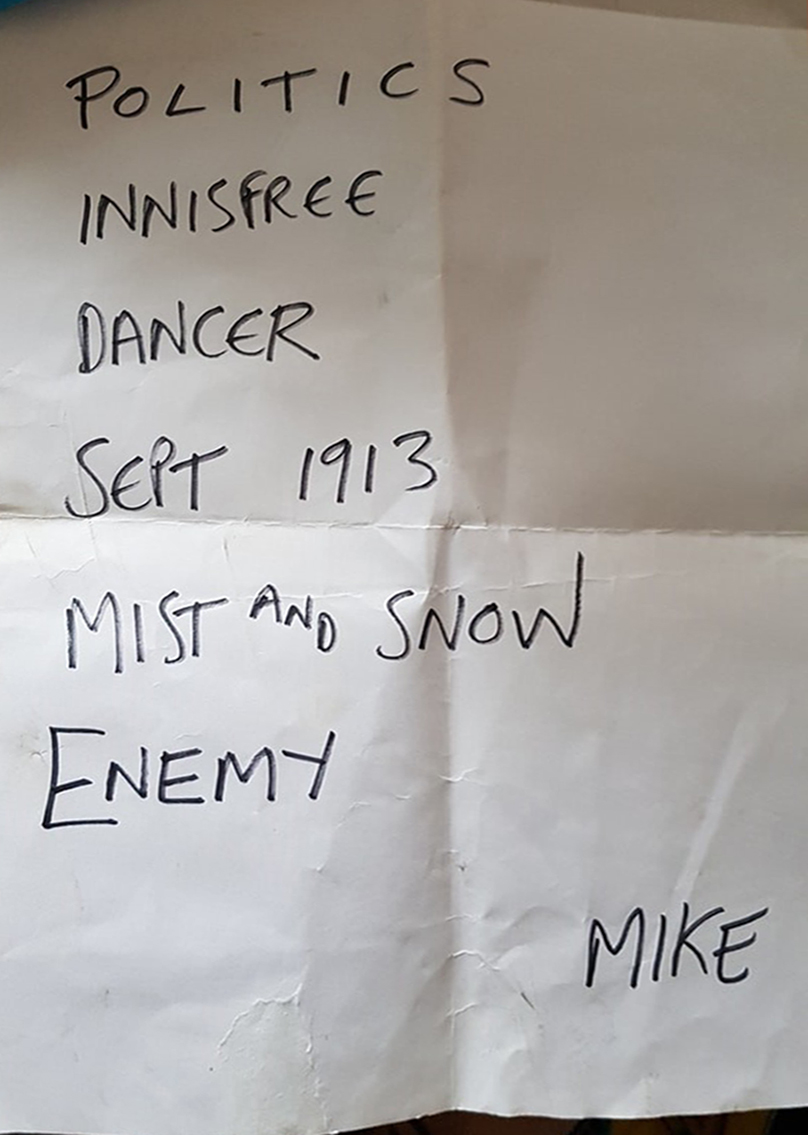 POLITICS
INNISFREE
DANCER
SEPT 1913
MIST AND SNOW
ENEMY
MIKE